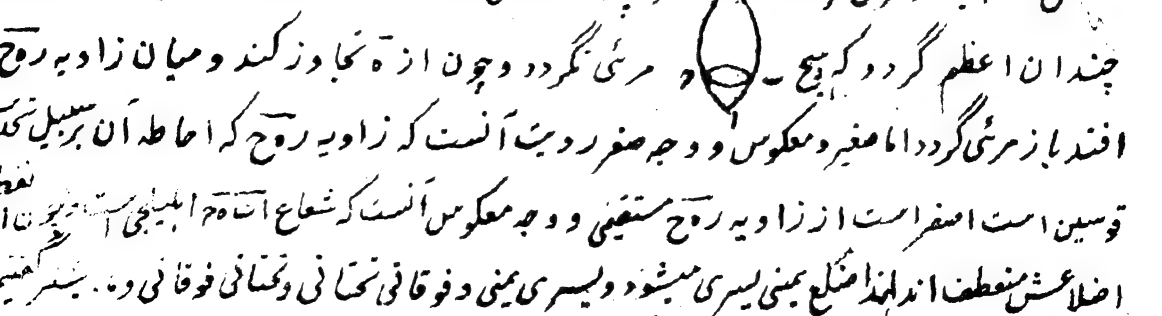 چندان اعظم گردد که هیچ مرئی نگردد و چون از ه تجاوز کند و میان زاویه رهح
افتد باز مرئی گردد اما صغیر و معکوس و وجه صغر رویت آنست که زاویه رهح که احاطه آن بر سبیل
قوسین است اصغر است از زاویه رهح مستقیمی و وجه معکوس آنست که شعاع
اضلاعش منعطف اند لهذا ضلع یمنی یسری میشود و یسری یمنی و فوقانی تحتانی و تحتانی فوقانی